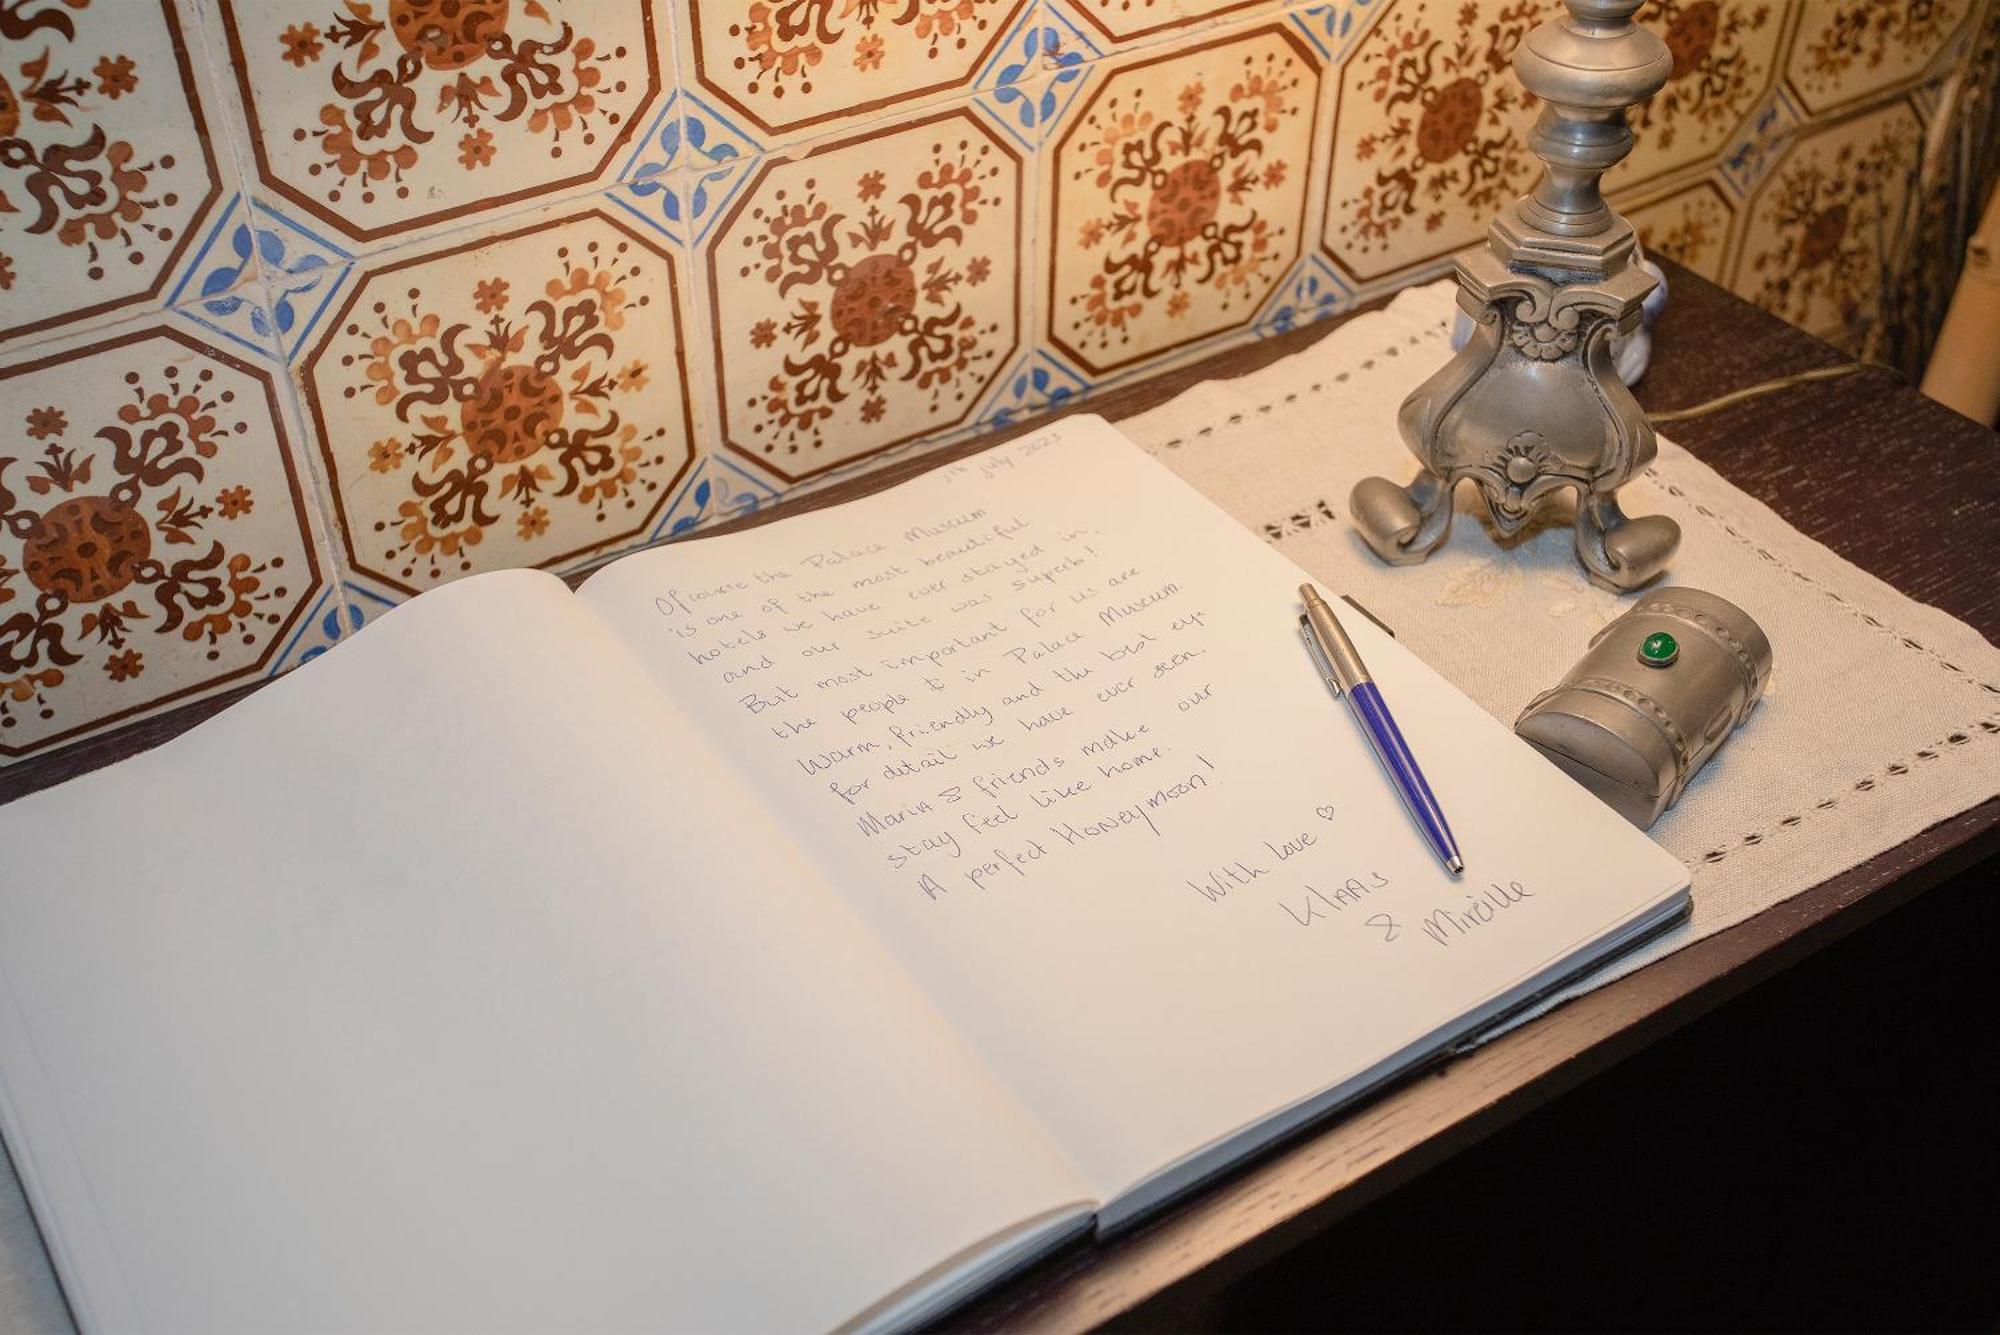 7th July 2023
Of course the Palace Museum
is one of the most beautiful
hotels we have ever stayed in,
and our suite was superb!
But most important for us are
the people & in Palace Museum.
Warm, friendly and the best eye
for detail we have ever seen.
Maria & friends make our
stay feel like home.
A perfect Honeymoon!
With love ♡
Klaas
& Mireille